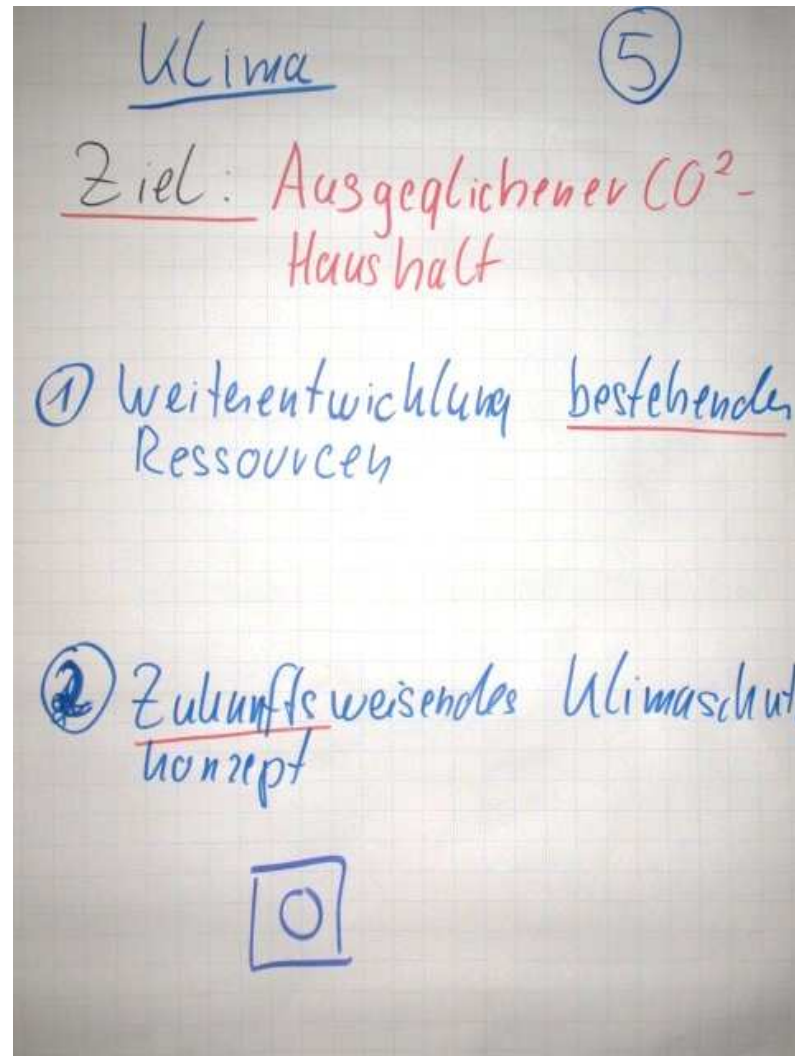 Klima 5
Ziel: Ausgeglichener CO²-
Haushalt
1 Weiterentwicklung bestehender
Ressourcen
2 Zukunftsweisendes Klimaschut
konzept
0